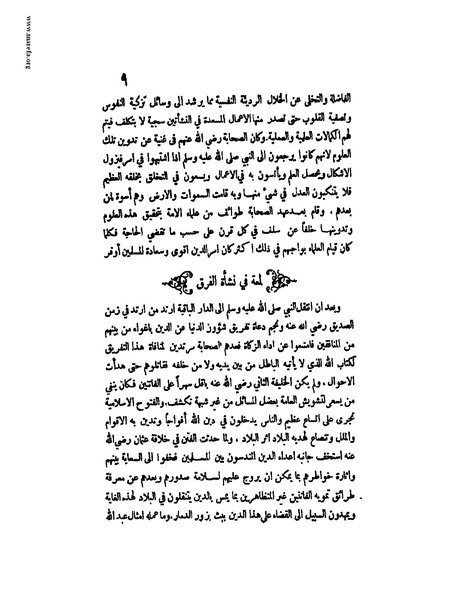 www.marefa.org
٩
الفاضلة والتخلي عن الخلال الرديئة النفسية مما يرشد الى وسائل تزكية النفوس
وتصفية القلوب حتى تصدر منها الاعمال المسعدة في النشأتين سجية لا بتكلف فيتم
لهم الكمالات العلمية والعملية. وكان الصحابة رضي الله عنهم في غنية عن تدوين تلك
العلوم لانهم كانوا يرجعون الى النبي صلى الله عليه وسلم اذا اشتبهوا في امر فيزول
الاشكال ويحصل العلم ويأتسون به في الاعمال ويسعون في التخلق بخلقه العظيم
فلا يتنكبون العدل في شيء منها وبه قامت السموات والارض وهم أسوة لمن
بعدهم ، وقام بعد عهد الصحابة طوائف من علماء الامة بتحقيق هذه العلوم
وتدوينها خلفاً عن سلف في كل قرن على حسب ما تقتضي الحاجية فكلما
كان قيام العلماء بواجبهم في ذلك اكثر كان امر الدين اقوى وسعادة المسلمين أوفر
لمعة في نشأة الفرق
وبعد ان انتقل النبي صلى الله عليه وسلم الى الدار الباقية ارتد من ارتد في زمن
الصديق رضي الله عنه ونجم دعاة تفريق شؤون الدنيا عن الدين باغواء من بينهم
من المنافقين فامتنعوا عن اداء الزكاة فعدهم الصحابة مرتدين لمنافاة هذا التفريق
لكتاب الله الذي لا يأتيه الباطل من بين يديه ولا من خلفه فقاتلوهم حتى هدأت
الاحوال ، ولم يكن الخليفة الثاني رضي الله عنه باقل سهراً على الفاتنين فكان ينفي
من يسعى لتشويش العامة بعضل المسائل من غير شبهة تكشف، والفتوح الاسلامية
تجرى على اتساع عظيم والناس يدخلون في دين الله أفواجاً وتدين به الاقوام
والملل وتنصاع لهديه البلاد اثر البلاد ، ولما حدثت الفتن في خلافة عثمان رضي الله
عنه استخف جانبه اعداء الدين المندسون بين المسلمين فخفوا الى السعاية بينهم
واثارة خواطرهم بما يمكن ان يروج عليهم لسلامة صدورهم وبعدهم عن معرفة
طرائق تمويه الفاتنين غير المتظاهرين بما يمس بالدين يتنقلون في البلاد لهذه الغاية
ويمهدون السبيل الى القضاء على هذا الدين ببث بزور الدمار، وما عمله امثال عبد الله